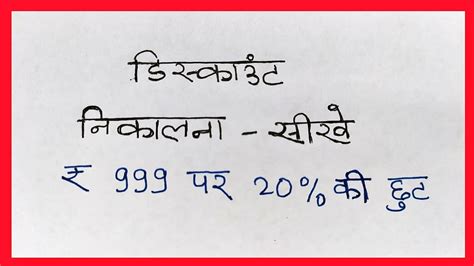 डिस्काउंट
निकालना - सीखे
₹ 999 पर 20% की छुट